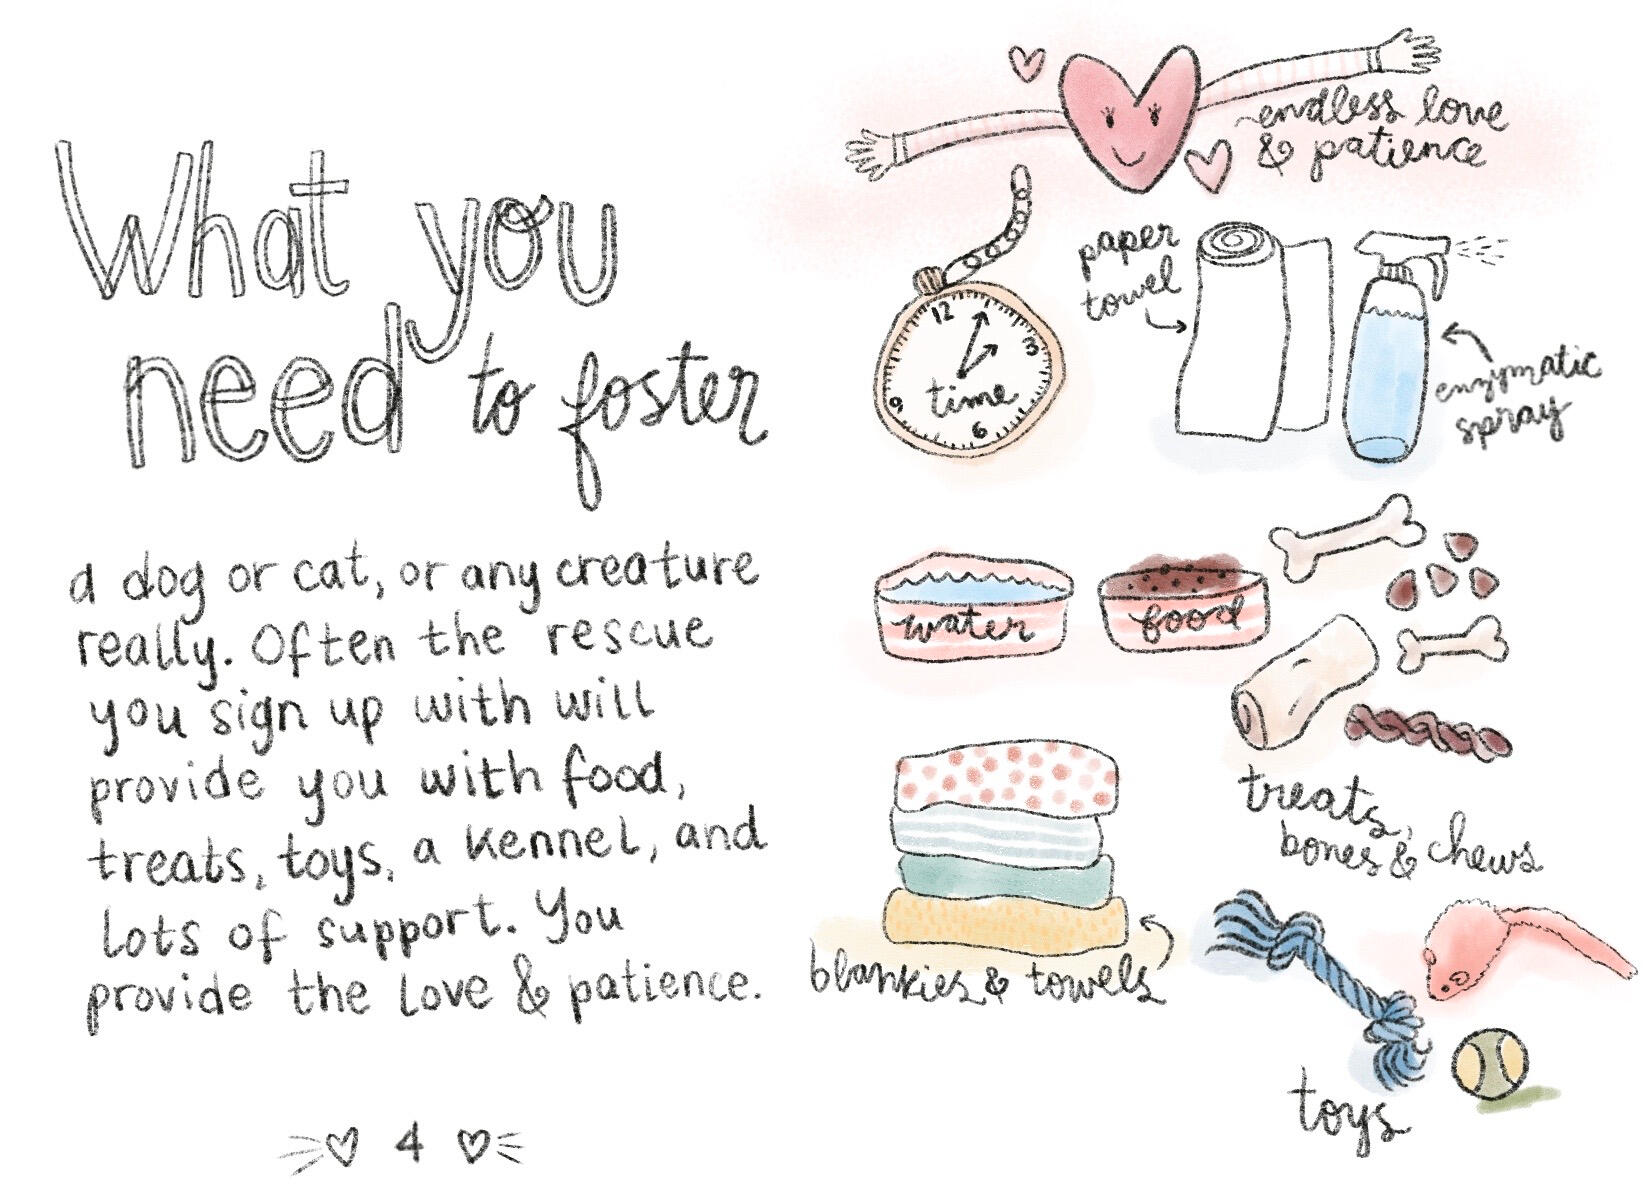 What you
need to foster
a dog or cat, or any creature
really. Often the rescue
you sign up with will
provide you with food,
treats, toys, a kennel, and
lots of support. You
provide the love & patience.
4
endless love
& patience
12
3
time
9
6
paper
towel
enzymatic
spray
water
food
treats,
bones & chews
blankies & towels
toys